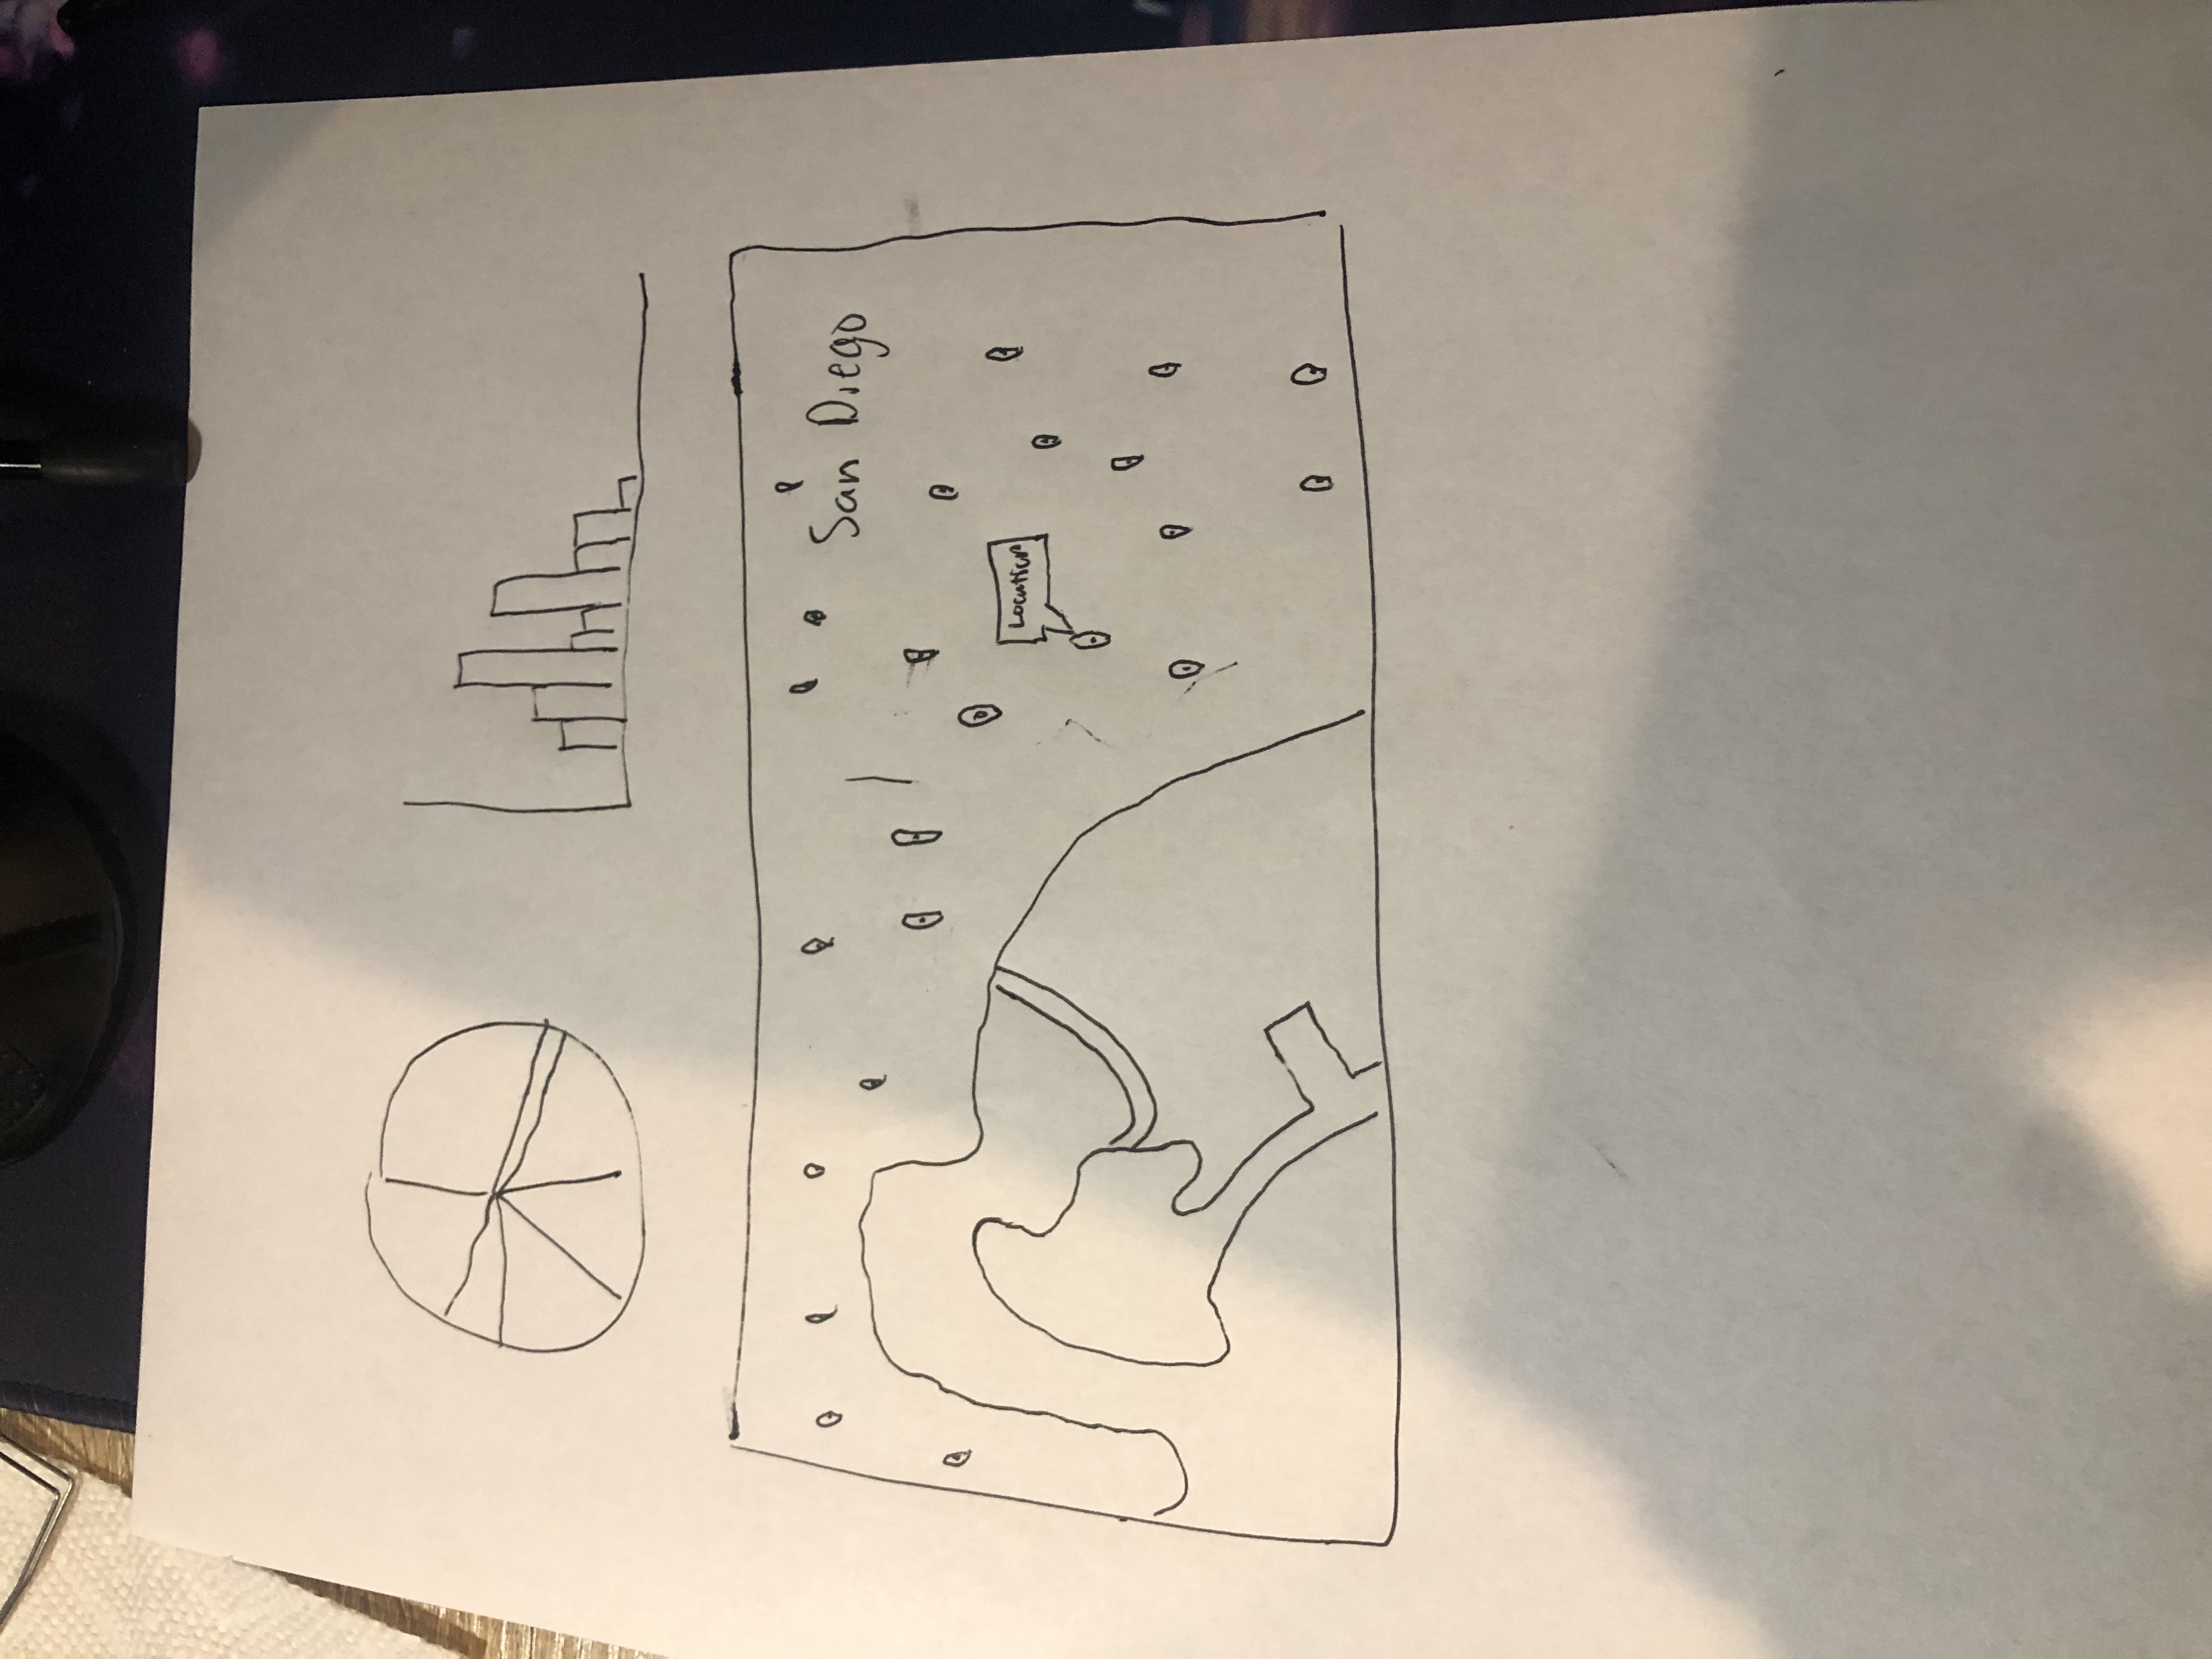 San Diego
Location